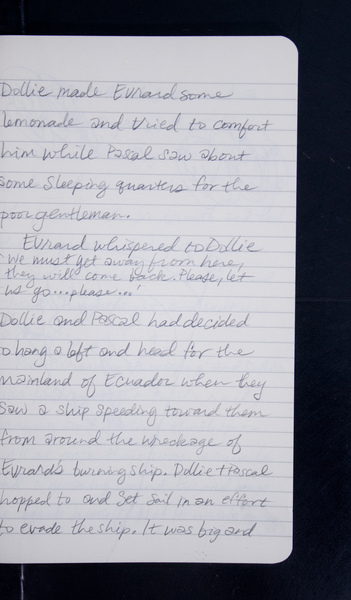 Dollie made Evrard some
lemonade and tried to comfort
him while Pascal saw about
some sleeping quarters for the
poor gentleman.
Evrard whispered to Dollie
'We must get away from here,
they will come back. Please, let
us go...please...'
Dollie and Pascal had decided
to hang a left and head for the
mainland of Ecuador when they
saw a ship speeding toward them
from around the wreckage of
Evrard's burning ship. Dollie + Pascal
hopped to and set sail in an effort
to evade the ship. It was big and